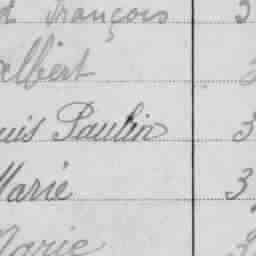 françois 3
albert 3
uis Paulin 3
Marie 3
Marie 3